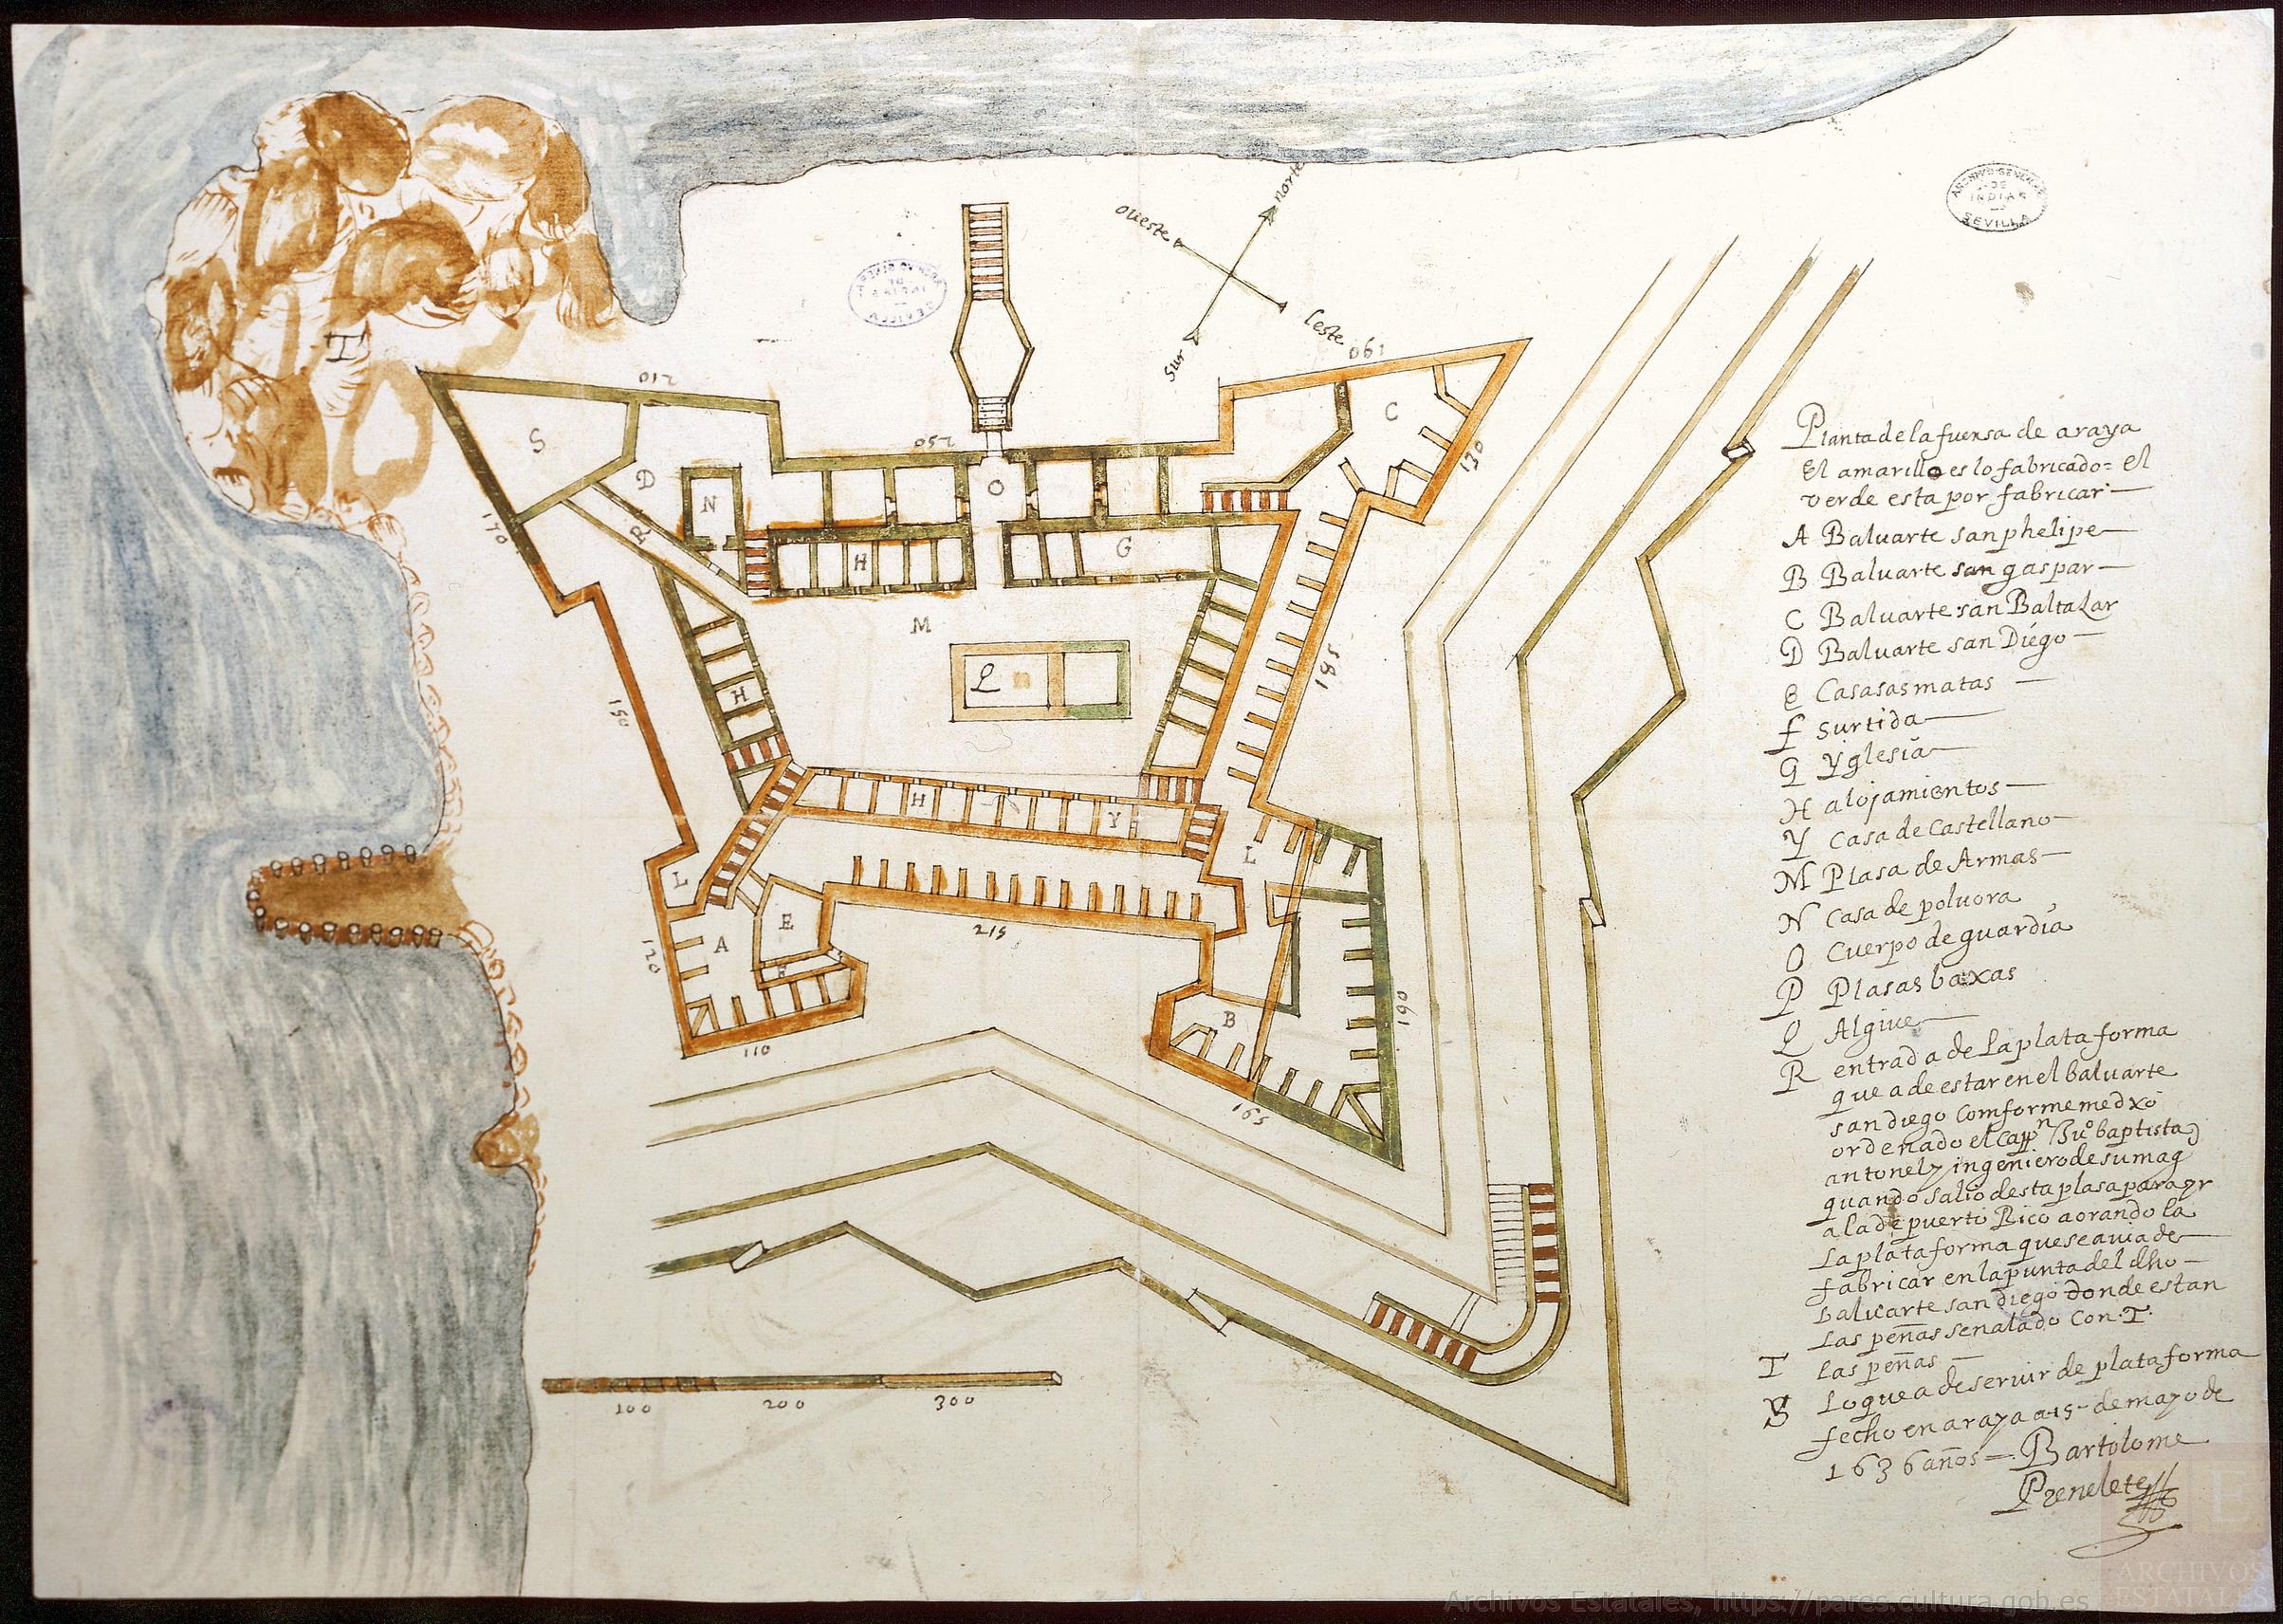 norte
oueste
Sur
leste
190
210
250
C
S
D
N
O
130
170
R
H
G
M
185
H
150
Q
H
Y
L
L
A
E
215
120
F
190
B
110
165
100
200
300
T
Planta de la fuersa de araya
El amarillo es lo fabricado = El
verde esta por fabricar
A Baluarte san phelipe
B Baluarte san gaspar
C Baluarte san Baltasar
D Baluarte san Diego
E Casasasmatas
F Surtida
G Yglesia
H alojamientos
Y Casa de Castellano
M Plasa de Armas
N Casa de poluora
O Cuerpo de guardia
P Plasas baxas
Q Algiue
R entrada de la plataforma
que a de estar en el baluarte
san diego comforme me dxo
ordenado el Capp.n Ju.o baptista
antonely ingeniero de su mag
quando salio desta plasa para yr
a la de puerto Rico aorando la
la plataforma que se auia de
fabricar en la punta del dho
baluarte san diego donde estan
las peñas señalado con .T.
T las peñas
S lo que a de seruir de plataforma
fecho en araya a 15 de mayo de
1636 años = Bartolome
Prenelete
ARCHIVO GENERAL
DE
INDIAS
SEVILLA
ARCHIVOS
ESTATALES
Archivos Estatales, https://pares.cultura.gob.es